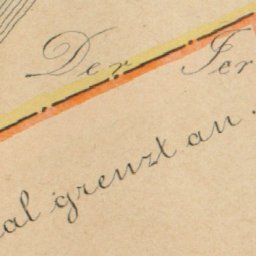 Der Fer
al grenzt an.